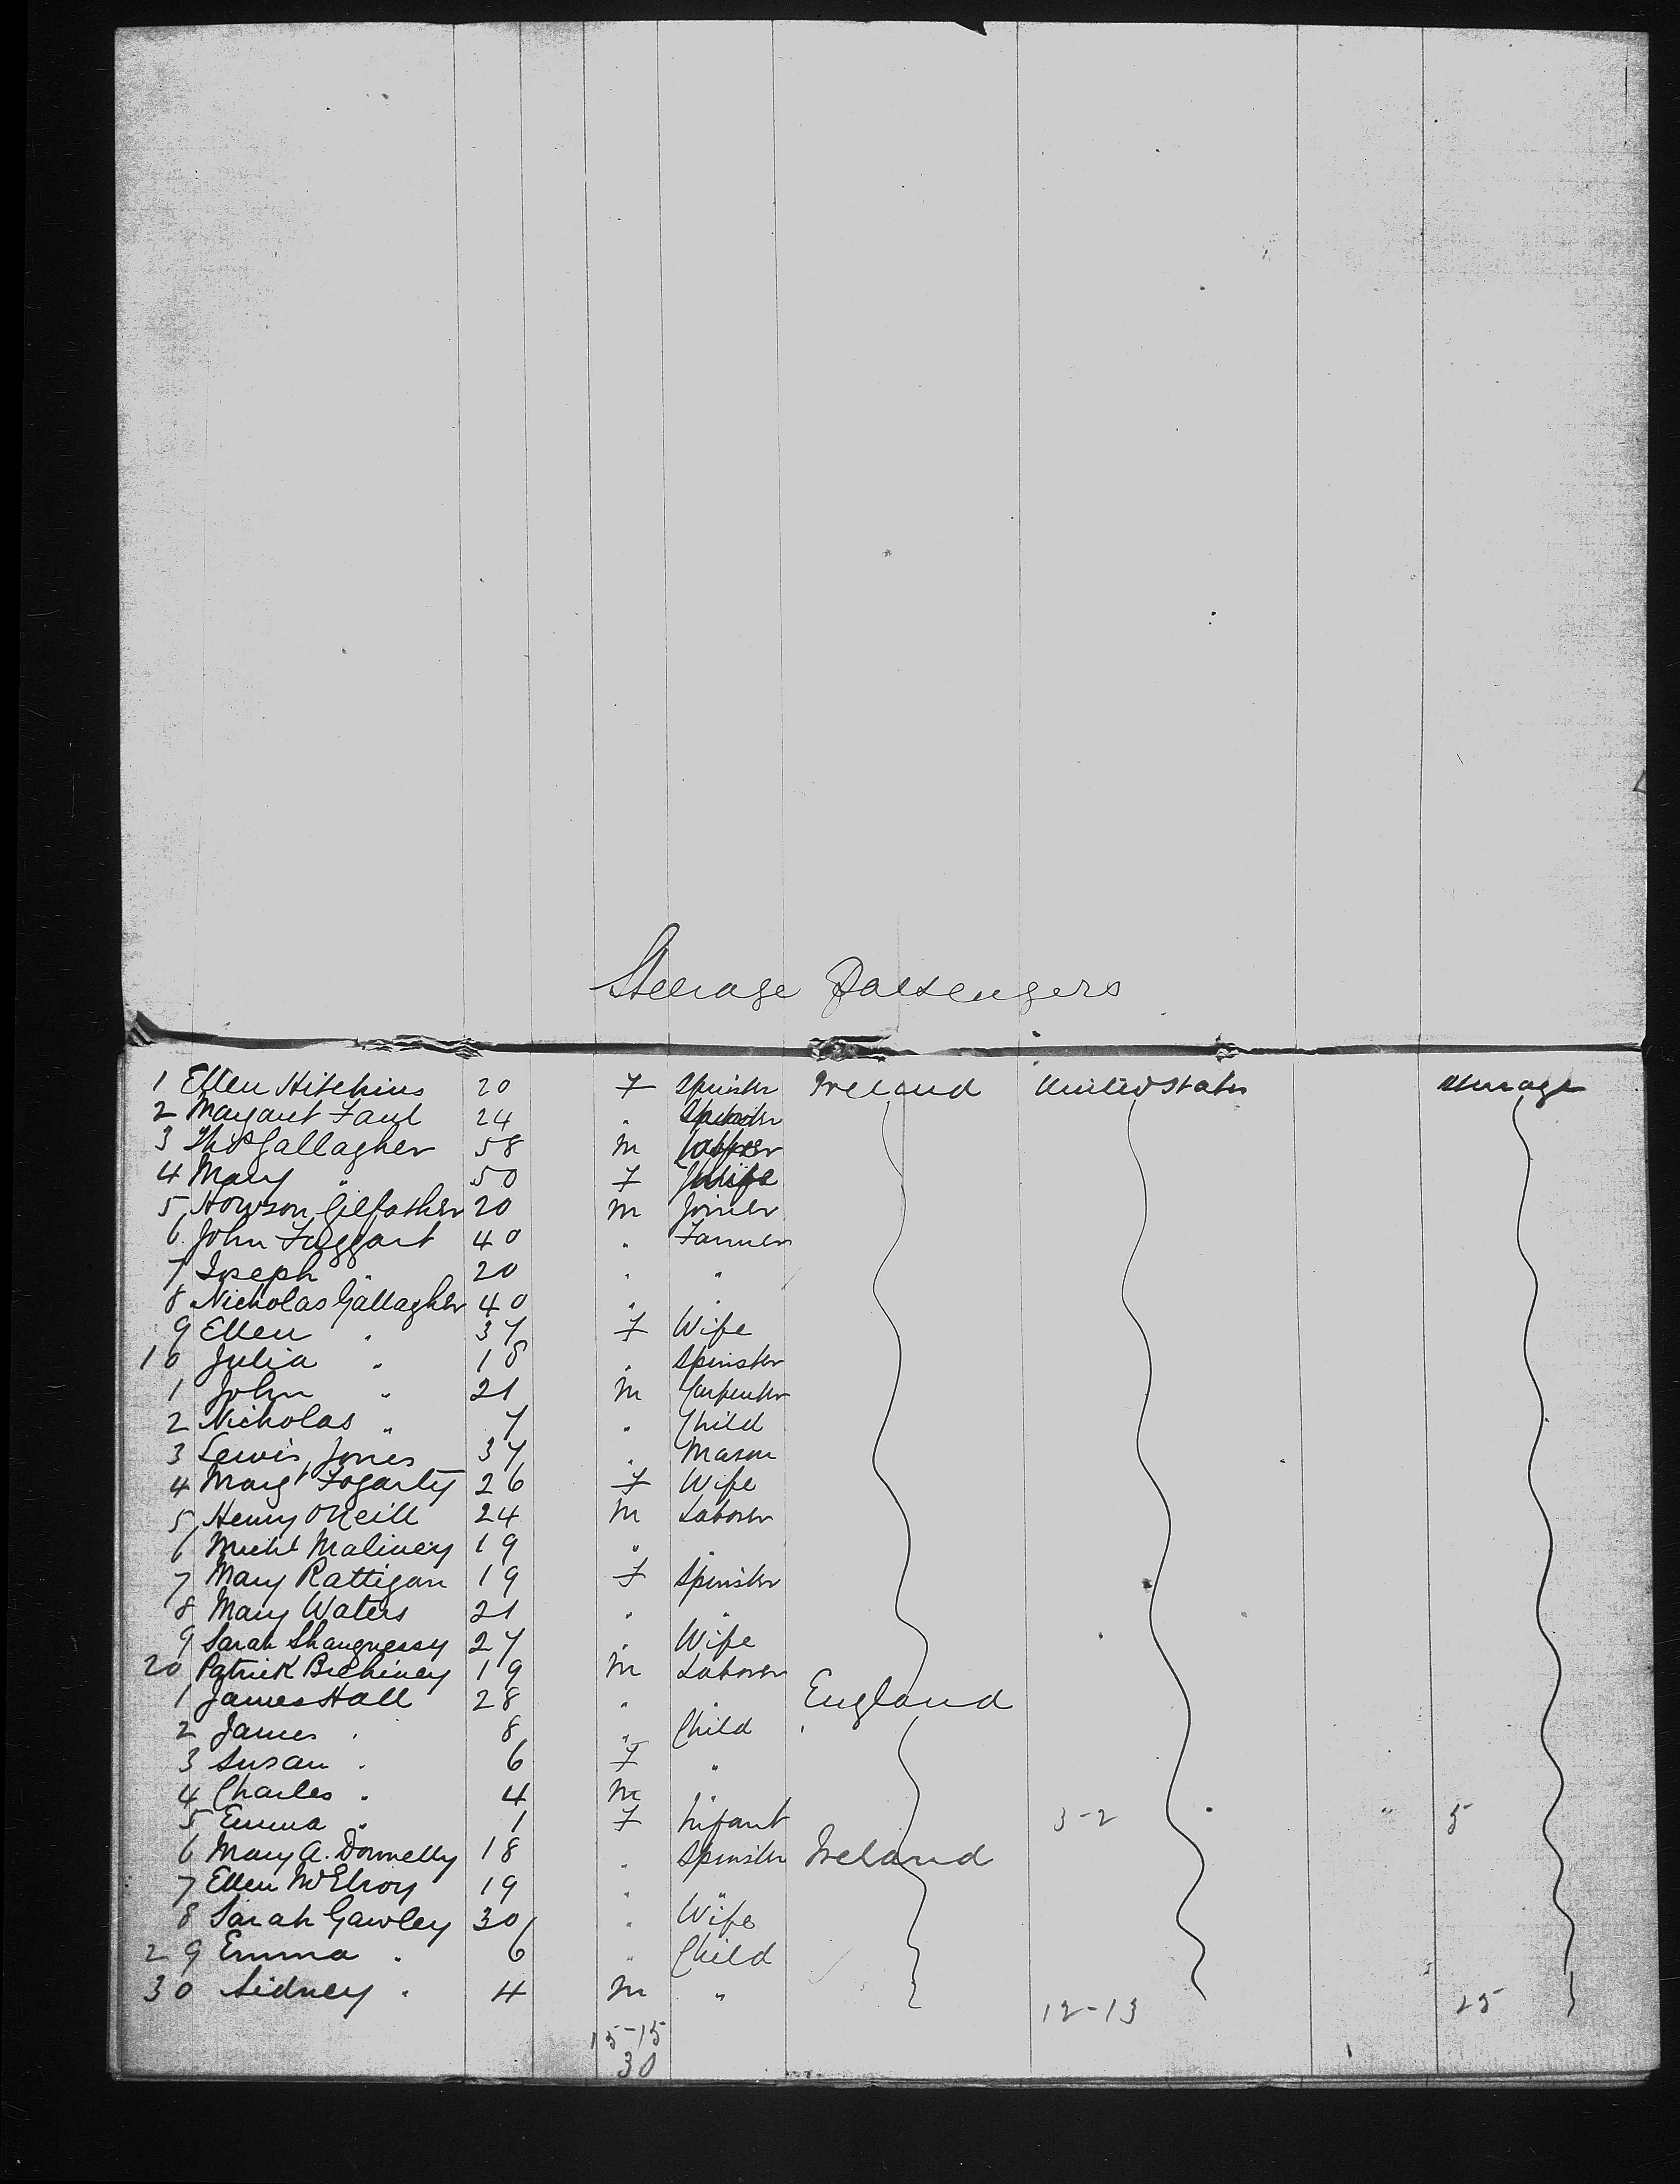 Steerage Passengers
1 Ellen Hitchins 20 F Spinster Ireland United States Steerage
2 Margaret Faul 24 " Spinster
3 Thos Gallagher 58 M Labourer
4 Mary " 50 F Wife
5 Howson Gilfather 20 M Joiner
6 John Taggart 40 " Farmer
7 Joseph " 20 " "
8 Nicholas Gallagher 40 " "
9 Ellen " 37 F Wife
10 Julia " 18 " Spinster
1 John " 21 M Carpenter
2 Nicholas " 7 " Child
3 Lewis Jones 37 " Mason
4 Margt Fogarty 26 F Wife
5 Henry O'Neill 24 M Laborer
6 Michl Maliney 19 " "
7 Mary Rattigan 19 F Spinster
8 Mary Waters 21 " "
9 Sarah Shaugnessy 27 " Wife
20 Patrick Brehiney 19 M Laborer
1 James Hall 28 " " England
2 James " 8 " Child
3 Susan " 6 F "
4 Charles " 4 M "
5 Emma " 1 F Infant 3-2 5
6 Mary A. Donnelly 18 " Spinster Ireland
7 Ellen McElroy 19 " "
8 Sarah Gawley 30 " Wife
29 Emma " 6 " Child
30 Sidney " 4 M "
12-13 25
15-15
30